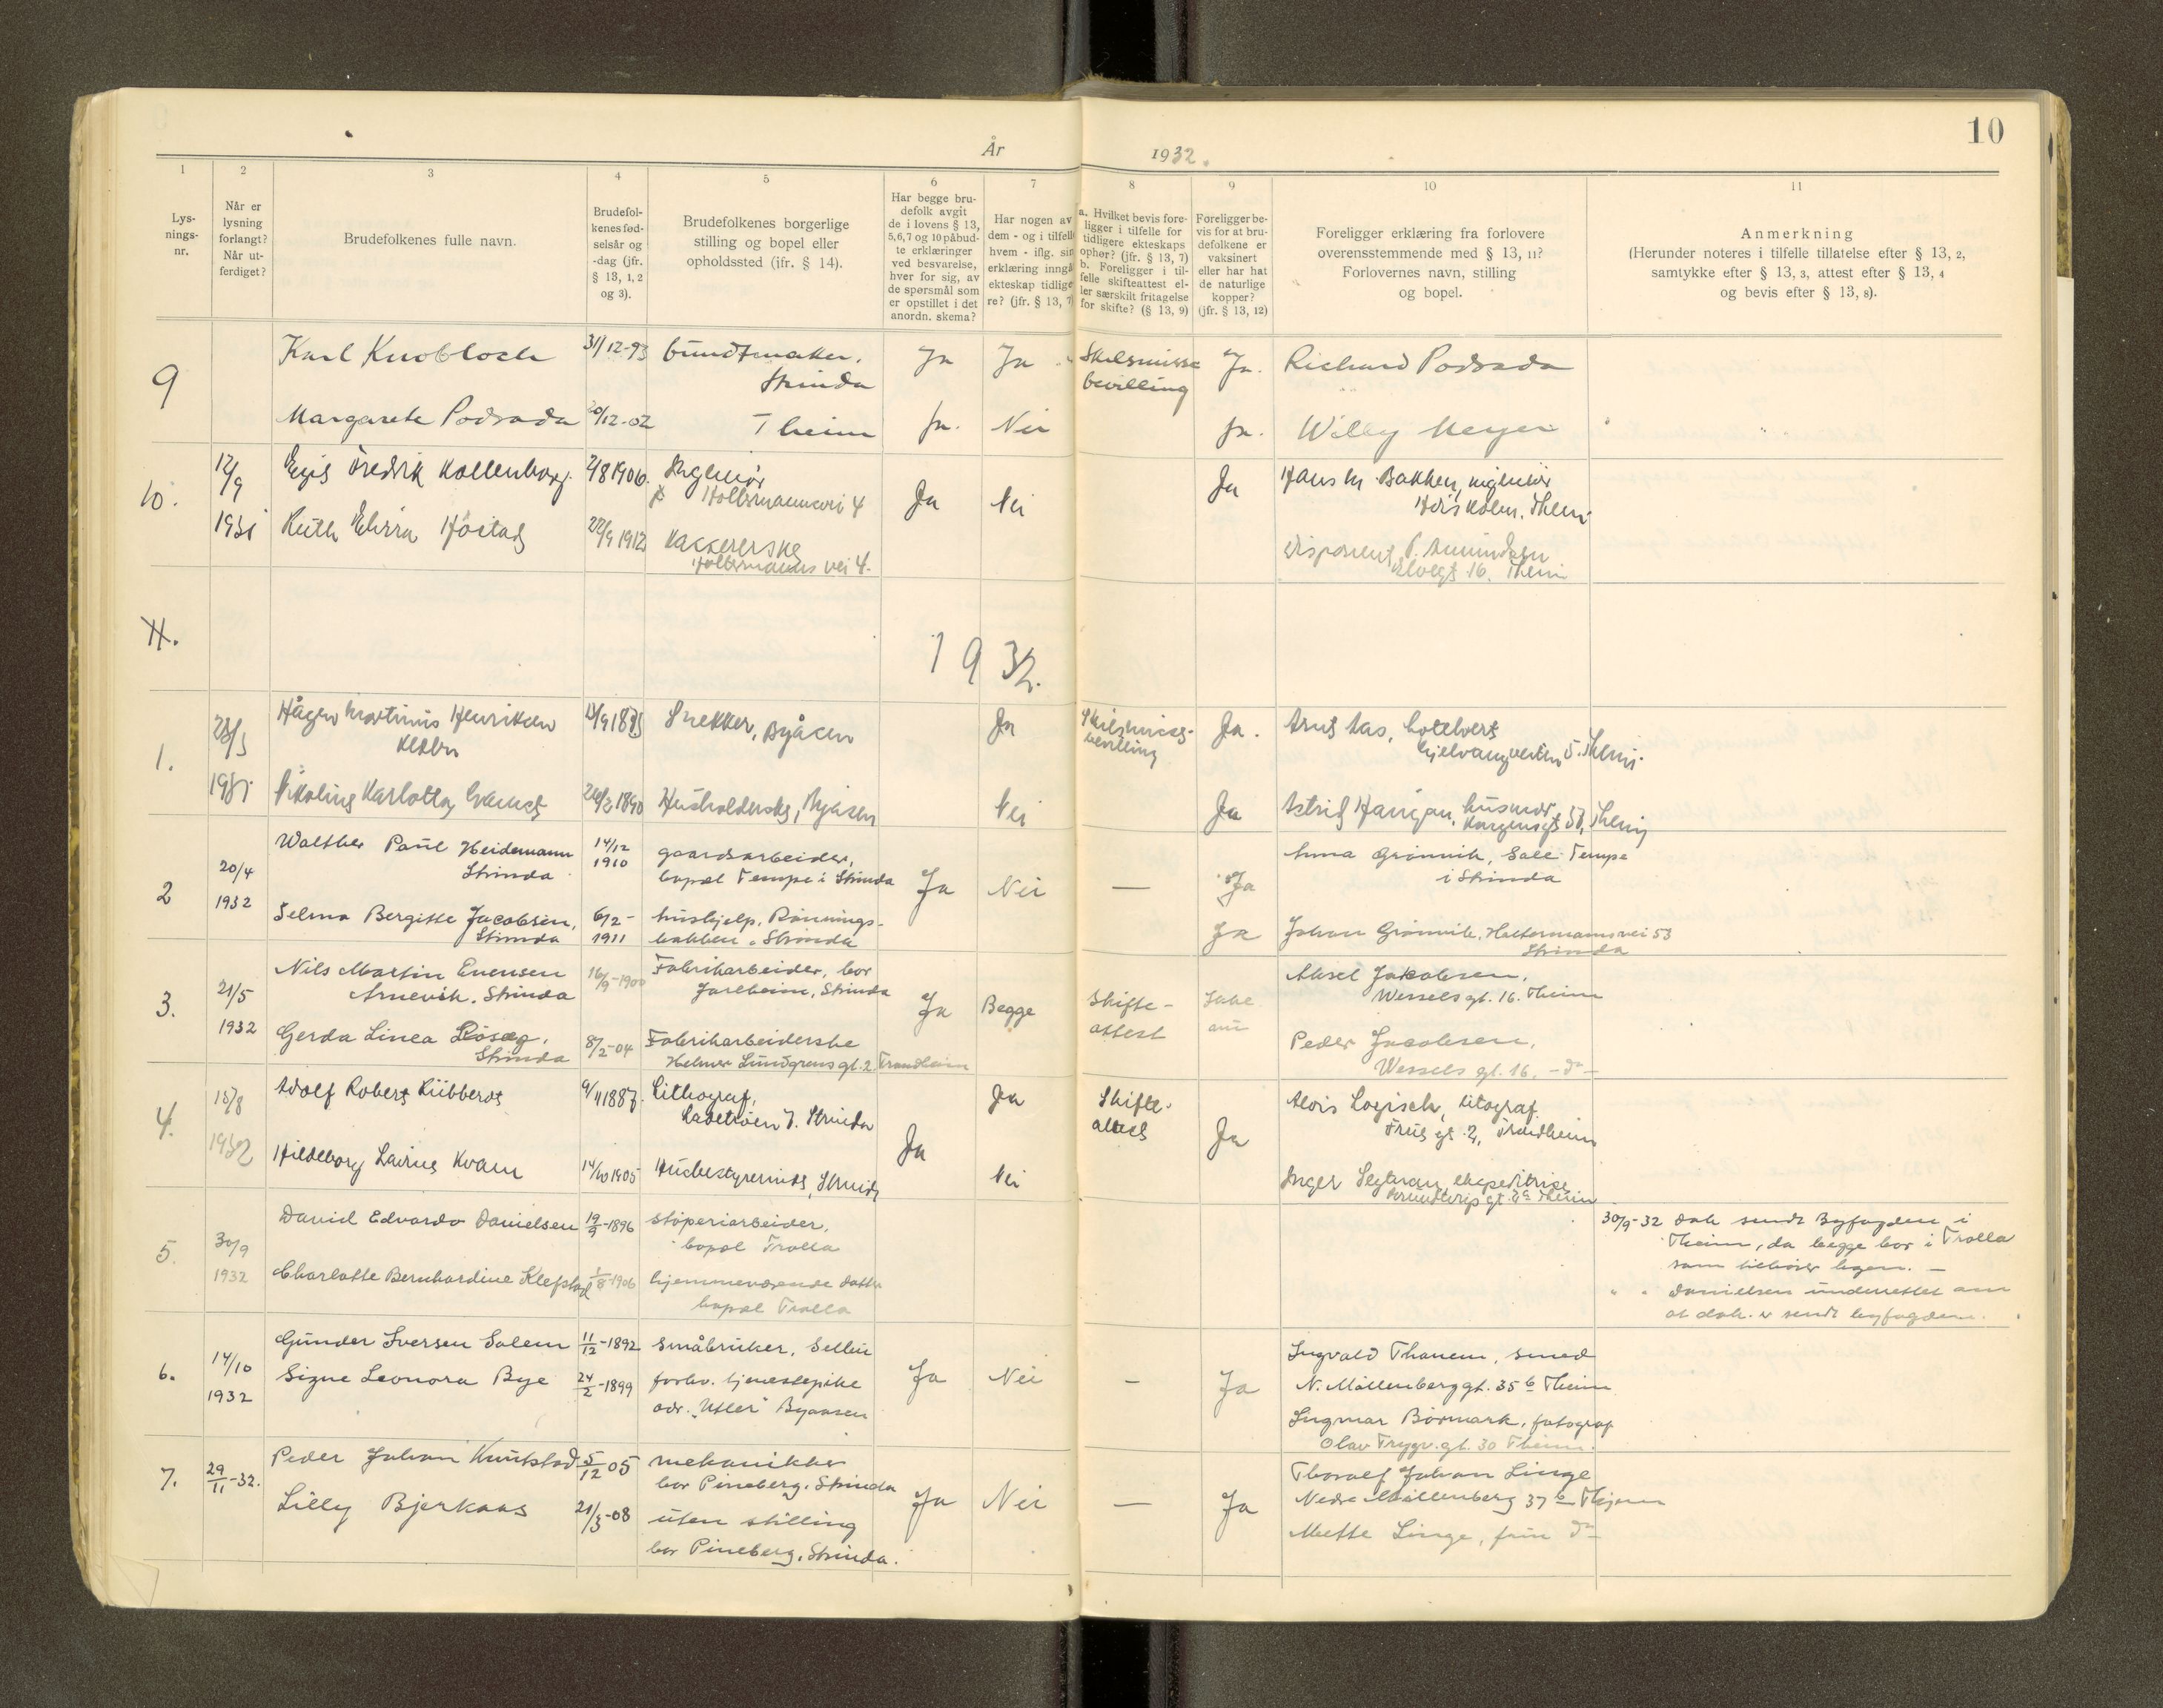 10
År 1932.
1
2
3
4
5
6
7
8
9
10
11
Lys-
nings-
nr.
Når er
lysning
forlangt?
Når ut-
ferdiget?
Brudefolkenes fulle navn.
Brudefol-
kenes fød-
selsår og
-dag (jfr.
§ 13, 1, 2
og 3).
Brudefolkenes borgerlige
stilling og bopel eller
opholdssted (jfr. § 14).
Har begge bru-
defolk avgit
de i lovens § 13,
5,6,7 og 10 påbud-
te erklæringer
ved besvarelse,
hver for sig, av
de spørsmål som
er opstillet i det
anordn. skema?
Har nogen av
dem - og i tilfelle
hvem - iflg. sin
erklæring inngå
ekteskap tidlige
re? (jfr. § 13, 7)
a. Hvilket bevis fore-
ligger i tilfelle for
tidligere ekteskaps
ophør? (jfr. § 13, 7)
b. Foreligger i til-
felle skifteattest el-
ler særskilt fritagelse
for skifte? (§ 13, 9)
Foreligger be-
vis for at bru-
defolkene er
vaksinert
eller har hat
de naturlige
kopper?
(jfr. § 13, 12)
Foreligger erklæring fra forlovere
overensstemmende med § 13, 11?
Forlovernes navn, stilling
og bopel.
Anmerkning
(Herunder noteres i tilfelle tillatelse efter § 13, 2,
samtykke efter § 13, 3, attest efter § 13, 4
og bevis efter § 13, 8).
9
Karl Knobloch
31/12-93
bundtmaker,
Strinda
Ja
Ja
Skilsmisse
bevilling
Ja.
Richard Podsada
Margarete Podsada
20/12-02
Theim
Ja.
Nei
Ja.
Willy Meyer
10.
12/9
1931
Fredrik Kollenborg
2/8 1906.
Ingeniør
4
Ja
Nei
Ja
Hans M. Bakken, ingeniør
Theim
Ruth
22/9 1912
Kassererske
vei 4.
disponent P. Amundsen
16. Theim
11.
1932.
1.
28/3
Martinus Henriksen
Snekker, Byåsen
Ja
Skilsmisse-
bevilling
Ja.
5. Theim.
Karlotta
1890
Husholderske, Byåsen
Nei
Ja
Astrid Haugan, husmor
Theim
2
20/4
1932
Walther Paul Heidemann
Strinda
14/12
1910
gaardsarbeider,
bopæl Tempe i Strinda
Ja
Nei
—
Ja
Anna Grønvik, Tempe
i Strinda
Selma Bergitte Jacobsen,
Strinda
6/2-
1911
hushjelp, Rønnings-
bakken, Strinda
Ja
Johan Grønvik, Haltermannsvei 53
Strinda
3.
21/5
1932
Nils Martin Evensen
Arnevik. Strinda
16/9-1900
Fabrikarbeider, bor
Jarlheim, Strinda
Ja
Begge
Skifte-
attest
Aksel Jakobsen,
Wessels gt. 16. Theim
Gerda Linea
Strinda
8/2-04
Fabrikarbeiderske
Helmer Lundgrens gt. 2 Trondheim
Peder Jacobsen,
Wessels gt. 16. - do -
4.
18/8
1932
Adolf Robert Rübberdt
9/11 1887.
Lithograf,
7. Strinda
Ja
Ja
Skifte-
attest
Ja
Alois Logisch, litograf
gt. 2, Trondheim
Hildeborg Kvam
14/10 1905
Husbestyrerinde, Strinda
Nei
Inger Segtnan, ekspeditrise
Theim
5.
30/9
1932
David Edvardo Danielsen
19/9-1896
støperiarbeider,
bopæl Trolla
Charlotte Bernhardine Klefstad
1/8-1906
hjemmeværende datter
bopæl Trolla
30/9-32 dok sendt Byfogden i
Theim, da begge bor i Trolla
som tilhører byen. —
" " Danielsen underrettet om
at dok. er sendt byfogden.
6.
14/10
1932
Gunder Iversen Solem
11/12-1892
småbruker, Selbu
Ja
Nei
—
Ja
Ingvald Thanem, smed
N. Møllenberg gt. 35 b Theim
Signe Leonora Bye
24/2-1899
forhv. tjenestepike
adr. "Utler" Byaasen
Ingmar Børmark, fotograf
Olav Trygv. gt. 30 Theim.
7.
29/11-32.
Peder Johan Knutstad
5/12 05
mekaniker
bor Pineberg, Strinda
Ja
Nei
—
Ja
Thoralf Johan Linge
Nedre Møllenberg 37 b Thjem
Lilly Bjerkaas
21/3-08
uten stilling
bor Pineberg, Strinda.
Mette Linge, frue do